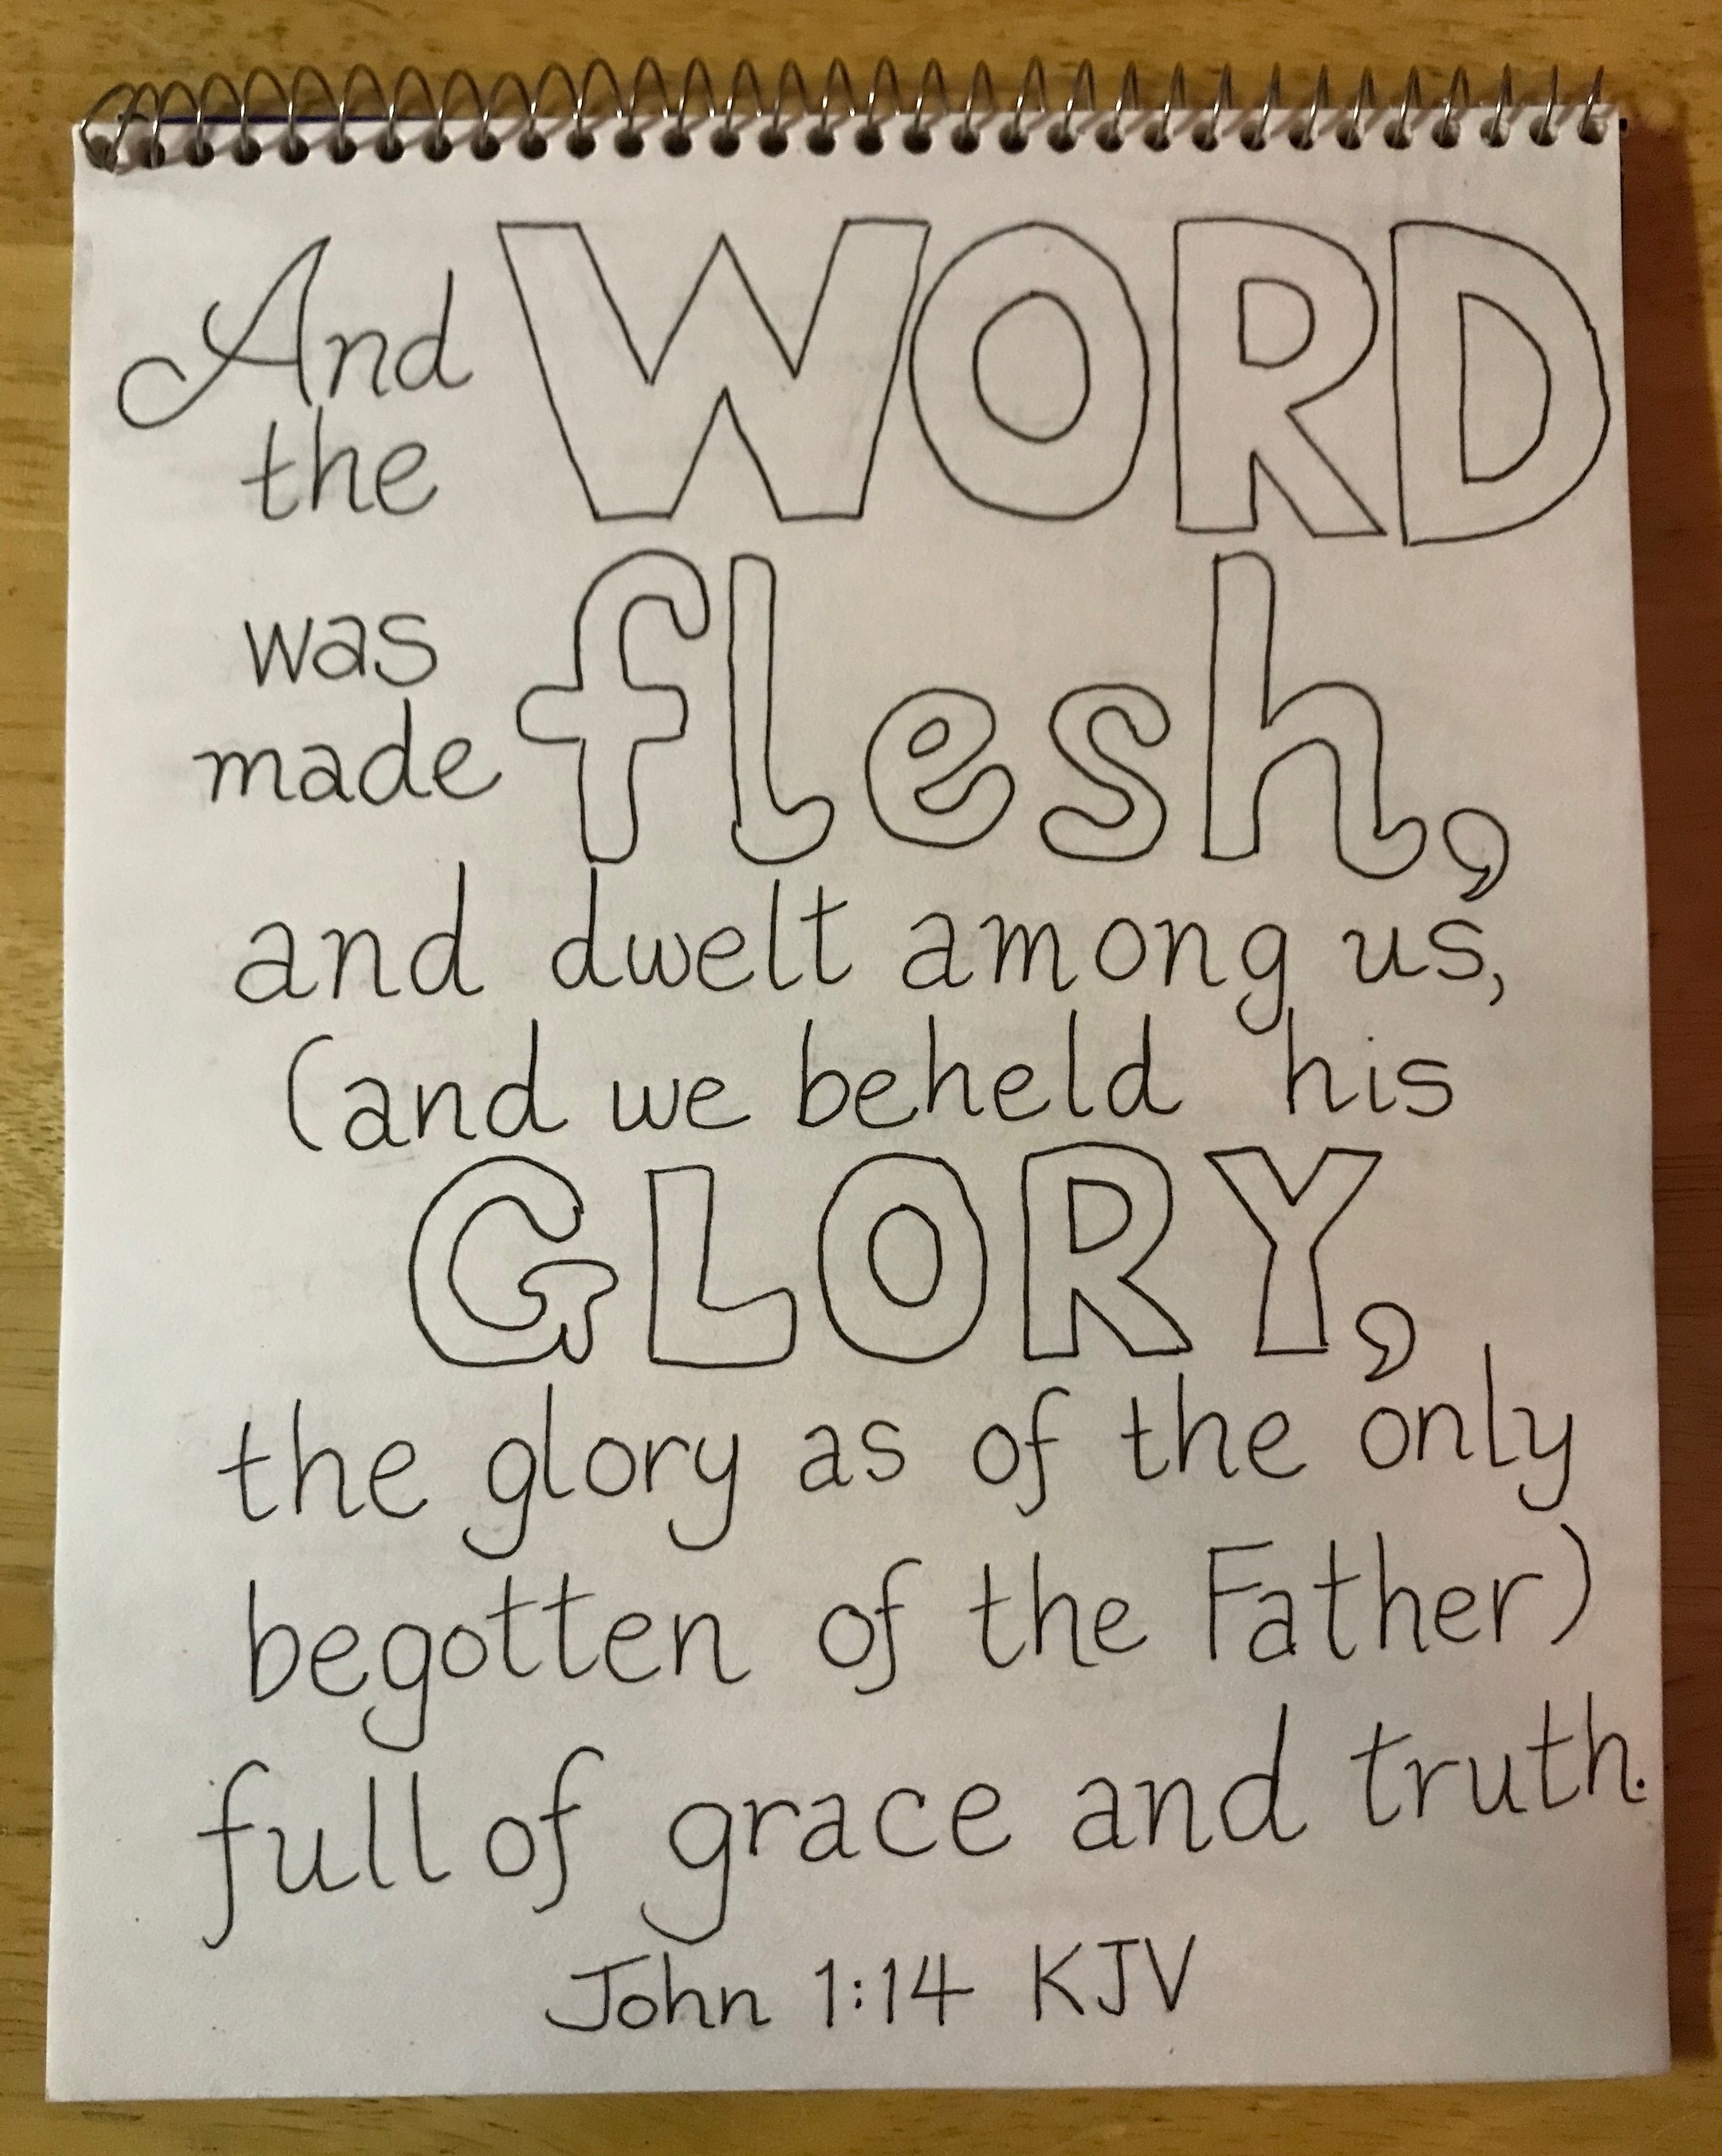 And WORD
the
was
made flesh,
and dwelt among us,
(and we beheld his
GLORY,
the glory as of the only
begotten of the Father)
full of grace and truth.
John 1:14 KJV